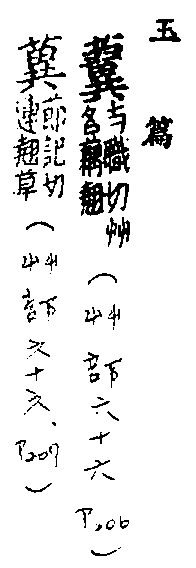 玉篇
䔬与職切艸名蘭翹（艸部六十六 P206）
蓂莭記切連翹草（艸部六十六、P207）